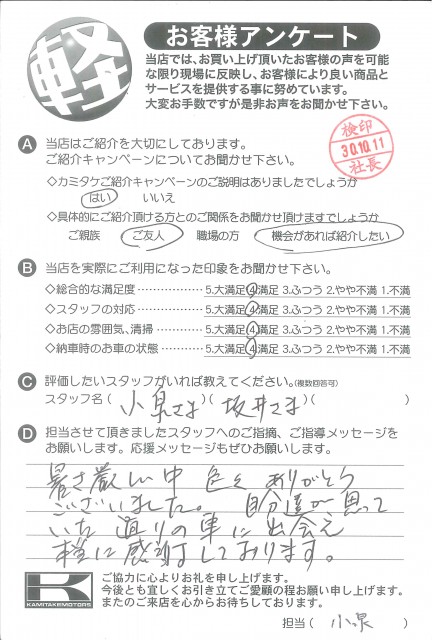 軽
お客様アンケート
当店では、お買い上げ頂いたお客様の声を可能
な限り現場に反映し、お客様により良い商品と
サービスを提供する事に努めています。
大変お手数ですが是非お声をお聞かせ下さい。
検印
30.10.11
社長
A 当店はご紹介を大切にしております。
ご紹介キャンペーンについてお聞かせ下さい。
◇カミタケご紹介キャンペーンのご説明はありましたでしょうか
はい いいえ
◇具体的にご紹介頂ける方とのご関係をお聞かせ頂けますでしょうか
ご親族 ご友人 職場の方 機会があれば紹介したい
B 当店を実際にご利用になった印象をお聞かせ下さい。
◇総合的な満足度 ・・・・・・・・・・・・ 5.大満足 4.満足 3.ふつう 2.やや不満 1.不満
◇スタッフの対応 ・・・・・・・・・・・・ 5.大満足 4.満足 3.ふつう 2.やや不満 1.不満
◇お店の雰囲気、清掃 ・・・・・・・・ 5.大満足 4.満足 3.ふつう 2.やや不満 1.不満
◇納車時のお車の状態 ・・・・・・・・ 5.大満足 4.満足 3.ふつう 2.やや不満 1.不満
C 評価したいスタッフがいれば教えてください。(複数回答可)
スタッフ名 ( 小泉さま )( 坂井さま )( )
D 担当させて頂きましたスタッフへのご指摘、ご指導メッセージを
お願いします。応援メッセージもぜひお願いします。
暑さ厳しい中 色々 ありがとう
ございました。 自分達が思って
いた通りの車に出会え
本当に感謝しております。
K
KAMITAKEMOTORS
ご協力に心よりお礼を申し上げます。
今後とも宜しくお引き立てご愛顧の程お願い申し上げます。
またのご来店を心からお待ちしております。
担当 ( 小泉 )